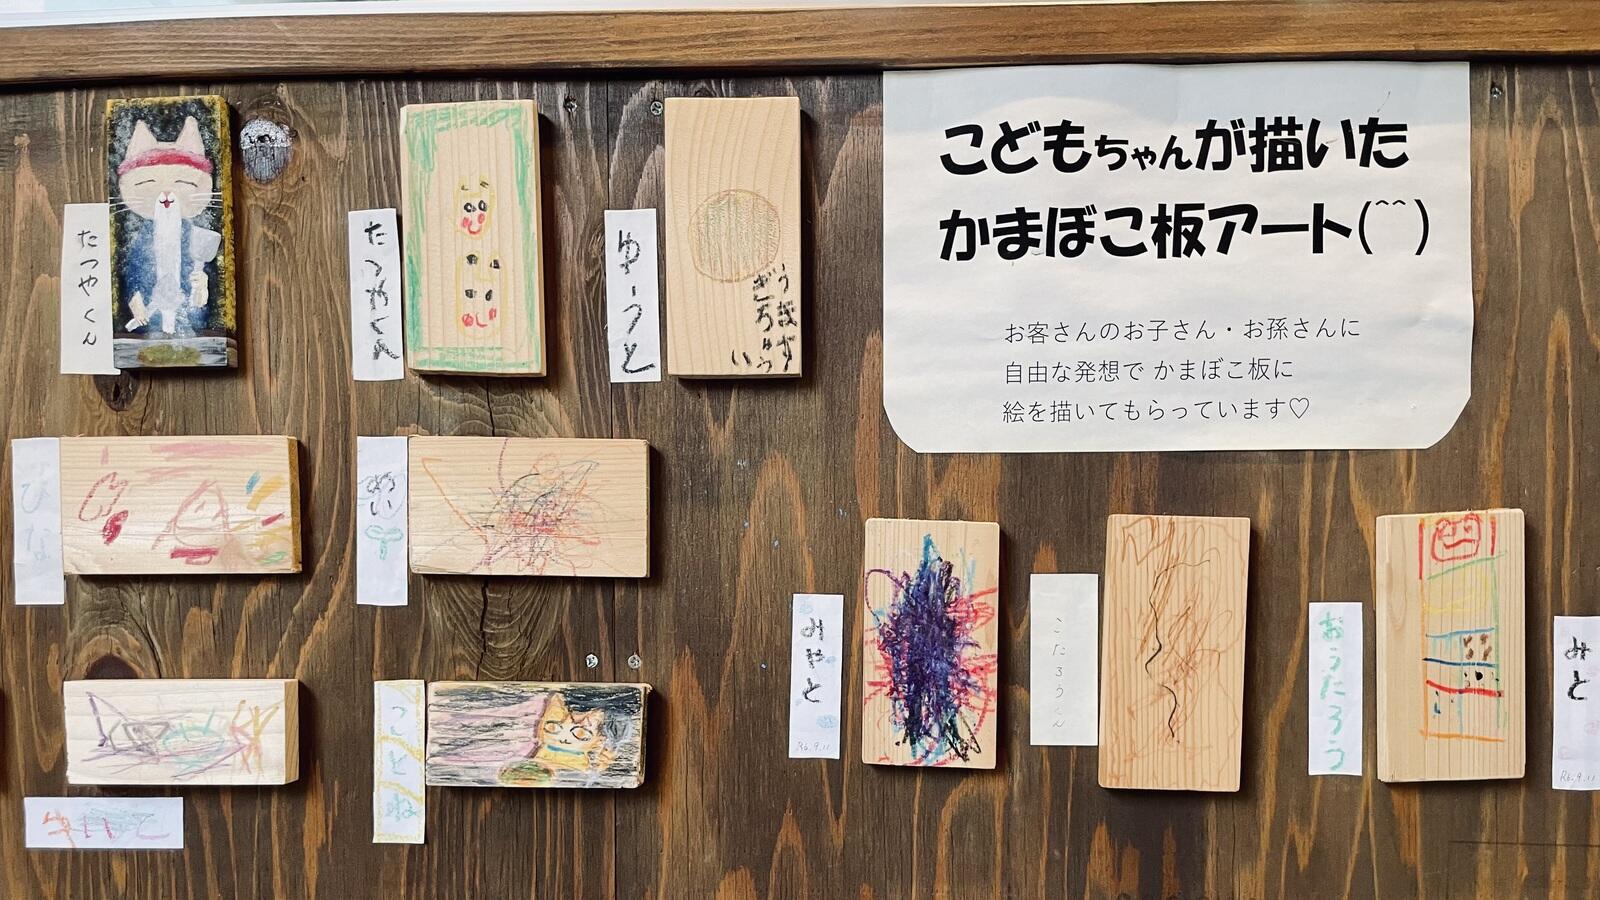 こどもちゃんが描いた
かまぼこ板アート(^^)
お客さんのお子さん・お孫さんに
自由な発想で かまぼこ板に
絵を描いてもらっています♡
たつやくん
たつやくん
ゆうと
ひな
めい
ことね
みやと
R6.9.11
こたろうくん
おうたろう
みと
R6.9.11